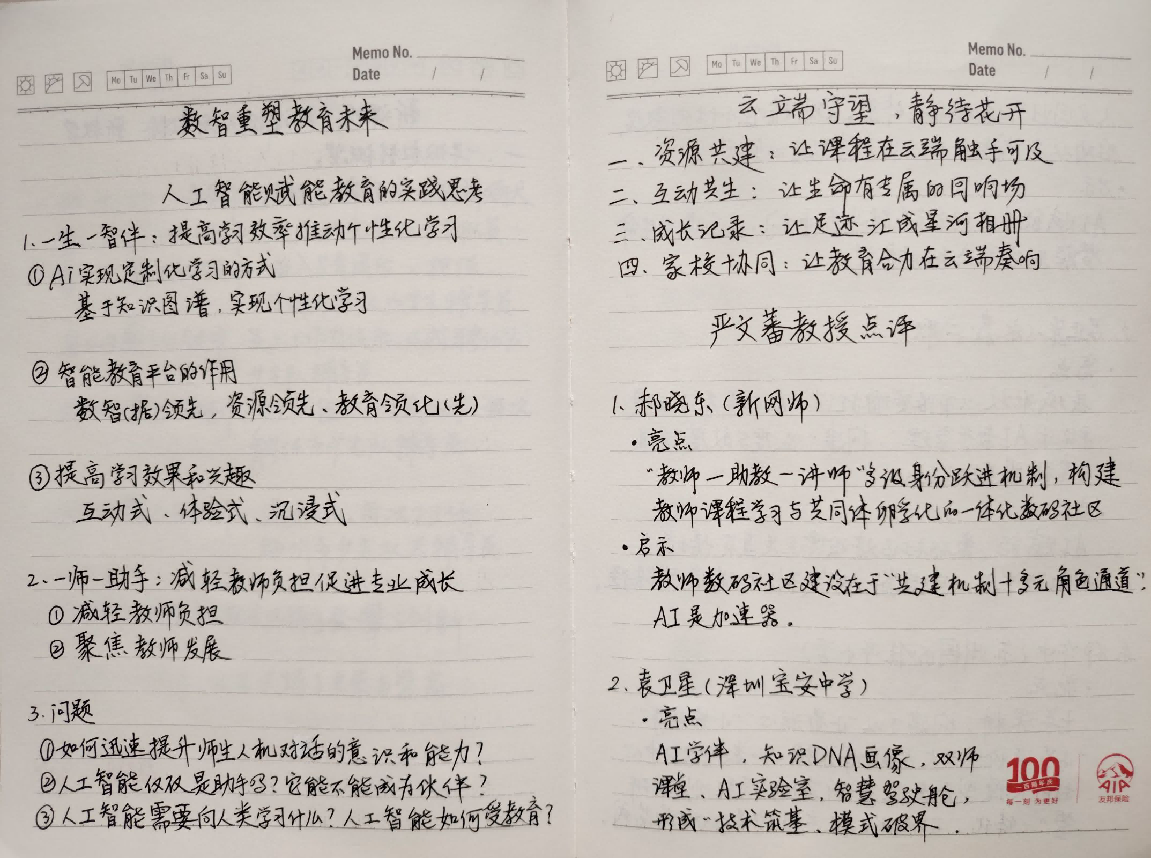 Memo No.
Mo Tu We Th Fr Sa Su
Date / /
数智重塑教育未来
人工智能赋能教育的实践思考
1.一生一智伴：提高学习效率推动个性化学习
①Ai实现定制化学习的方式
基于知识图谱，实现个性化学习
②智能教育平台的作用
数智(据)领先，资源领先、教育领化(先)
③提高学习效果和兴趣
互动式、体验式、沉浸式
2.一师一助手：减轻教师负担促进专业成长
①减轻教师负担
②聚焦教师发展
3.问题
①如何迅速提升师生人机对话的意识和能力？
②人工智能仅仅是助手吗？它能不能成为伙伴？
③人工智能需要向人类学习什么？人工智能如何受教育？
Memo No.
Mo Tu We Th Fr Sa Su
Date / /
云端守望，静待花开
一、资源共建：让课程在云端触手可及
二、互动共生：让生命有专属的回响场
三、成长记录：让足迹汇成星河相册
四、家校协同：让教育合力在云端奏响
严文蕃教授点评
1.郝晓东(新网师)
·亮点
"教师一助教一讲师"等级身份跃进机制，构建
教师课程学习与共同体孵化的一体化数码社区
·启示
教师数码社区建设在于"共建机制+多元角色通道".
AI是加速器.
2.袁卫星(深圳宝安中学)
·亮点
AI学伴，知识DNA画像，双师
课堂、AI实验室，智慧驾驶舱，
形成"技术筑基、模式破界.
100
每一刻 为更好
AIA
友邦保险